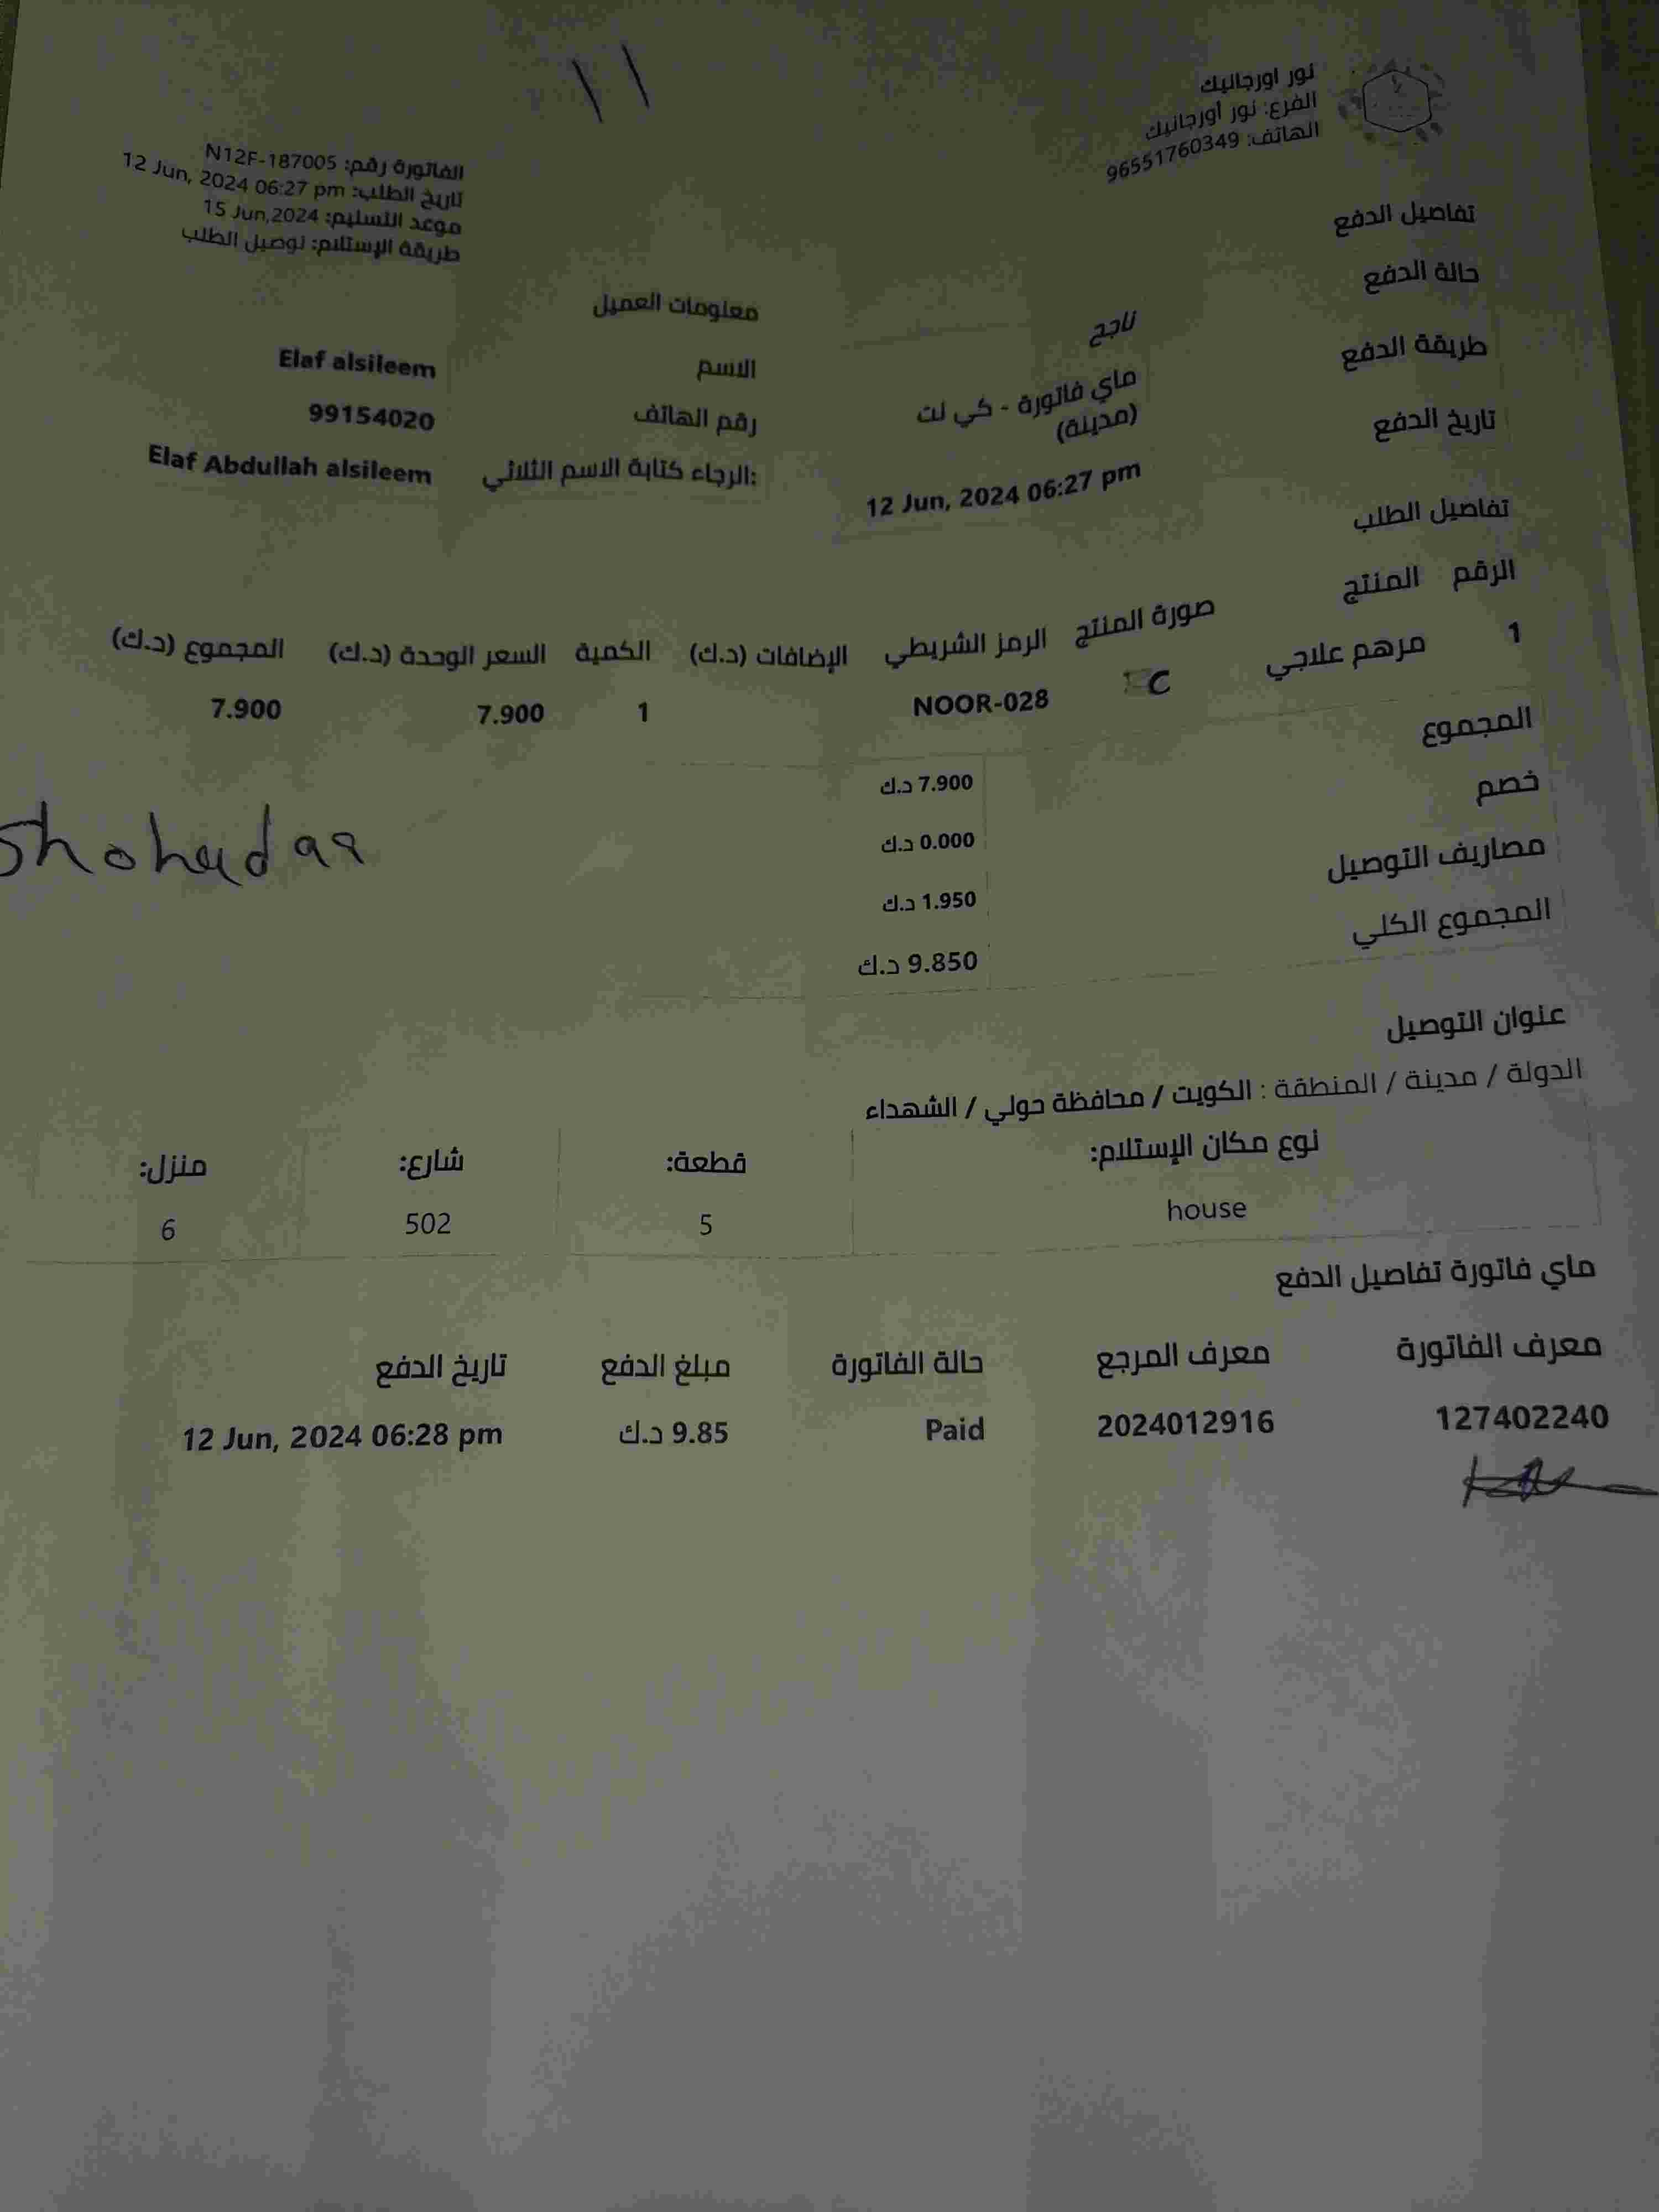 \ \
نور اورجانيك
الفرع: نور أورجانيك
الهاتف: 96551760349
الفاتورة رقم: N12F-187005
تاريخ الطلب: 12 Jun, 2024 06:27 pm
موعد التسليم: 15 Jun,2024
طريقة الإستلام: توصيل الطلب
تفاصيل الدفع
حالة الدفع ناجح
طريقة الدفع ماي فاتورة - كي نت (مدينة)
تاريخ الدفع 12 Jun, 2024 06:27 pm
معلومات العميل
الاسم Elaf alsileem
رقم الهاتف 99154020
الرجاء كتابة الاسم الثلاثي: Elaf Abdullah alsileem
تفاصيل الطلب
الرقم المنتج صورة المنتج الرمز الشريطي الإضافات (د.ك) الكمية السعر الوحدة (د.ك) المجموع (د.ك)
1 مرهم علاجي NOOR-028 1 7.900 7.900
المجموع 7.900 د.ك
خصم 0.000 د.ك
مصاريف التوصيل 1.950 د.ك
المجموع الكلي 9.850 د.ك
Shohadaa
عنوان التوصيل
الدولة / مدينة / المنطقة : الكويت / محافظة حولي / الشهداء
نوع مكان الإستلام: قطعة: شارع: منزل:
house 5 502 6
ماي فاتورة تفاصيل الدفع
معرف الفاتورة معرف المرجع حالة الفاتورة مبلغ الدفع تاريخ الدفع
127402240 2024012916 Paid 9.85 د.ك 12 Jun, 2024 06:28 pm